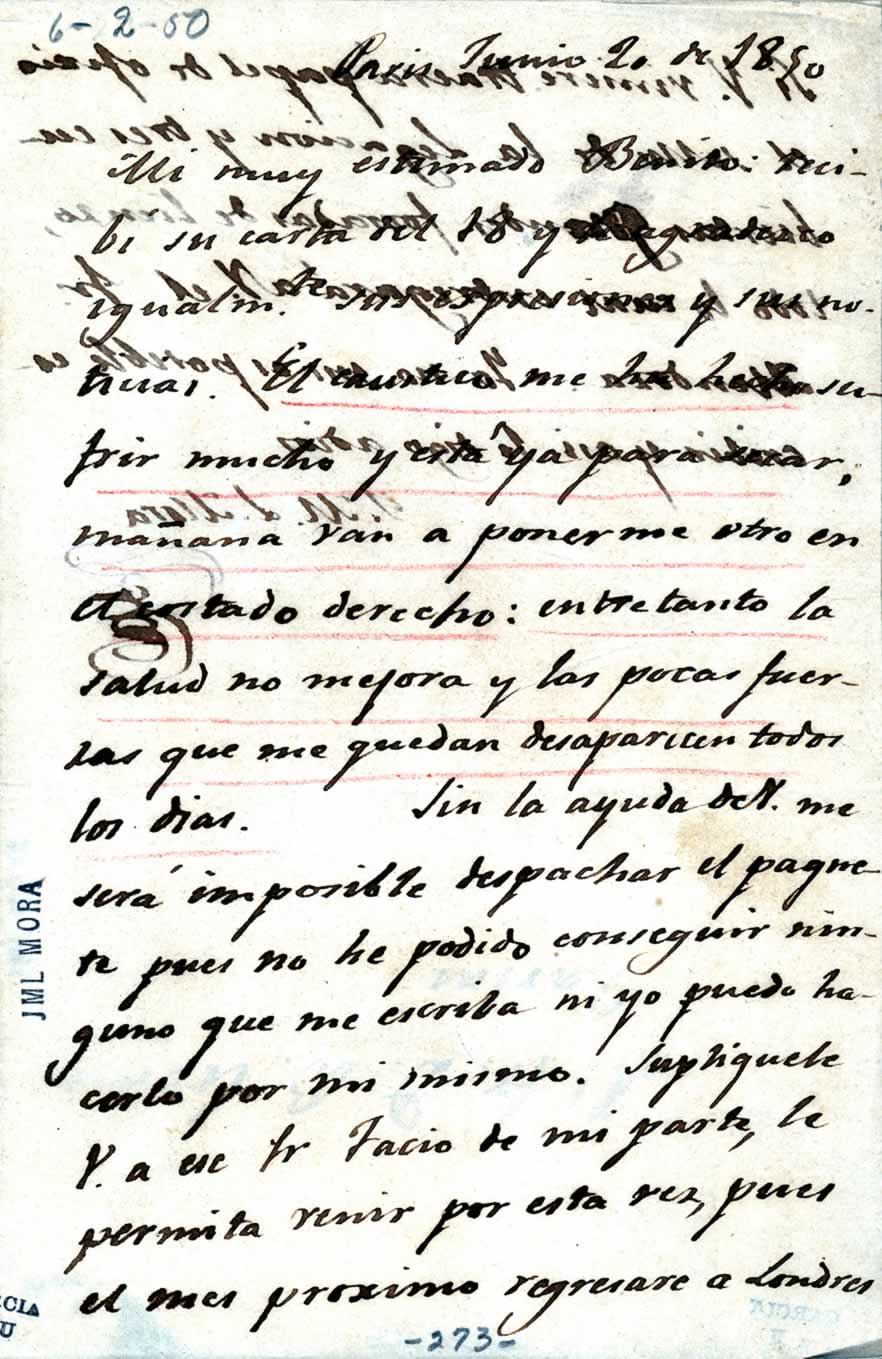 6-2-50
Paris Junio 2. de 1850
Mi muy estimado Benito: reci-
bi su carta del 18 y le agradesco
igualm.te sus espresiones y sus no-
ticias. El caustico me ha hecho su-
frir mucho y está ya para secar,
mañana van a ponerme otro en
el costado derecho: entretanto la
salud no mejora y las pocas fuer-
zas que me quedan desaparecen todos
los dias. Sin la ayuda de V. me
será imposible despachar el paque-
te pues no he podido conseguir nin-
guno que me escriba ni yo puedo ha-
cerlo por mi mismo. Supliquele
V. a ese Sr Facio de mi parte, le
permita venir por esta vez, pues
el mes proximo regresare a Londres
JML MORA
-273-